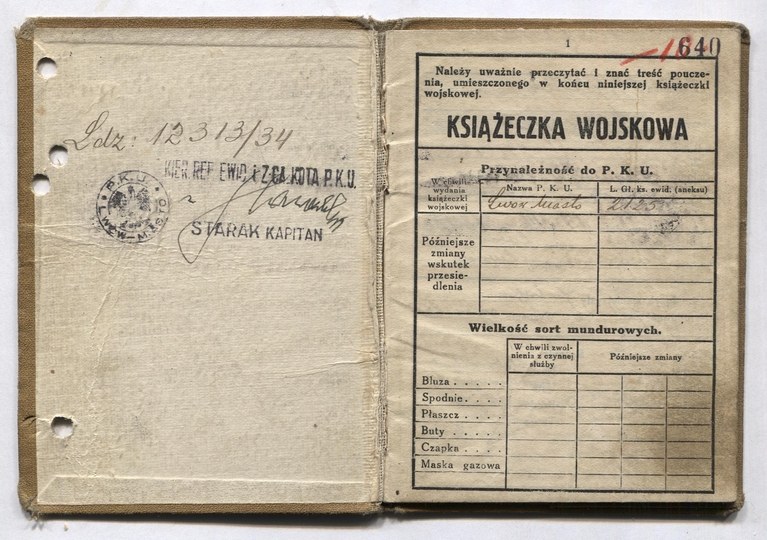 Ldz: 12313/34
KIER. REF. EWID. i ZCA KDTA P.K.U.
P.K.U.
LWÓW-MIASTO
STARAK KAPITAN
1
640
Należy uważnie przeczytać i znać treść poucze-
nia, umieszczonego w końcu niniejszej książeczki
wojskowej.
KSIĄŻECZKA WOJSKOWA
Przynależność do P. K. U.
W chwili
wydania
książeczki
wojskowej
Nazwa P. K. U.
L. Gł. ks. ewid. (aneksu)
Lwów Miasto
Późniejsze
zmiany
wskutek
przesie-
dlenia
Wielkość sort mundurowych.
W chwili zwol-
nienia z czynnej
służby
Późniejsze zmiany
Bluza . . . . .
Spodnie . . . .
Płaszcz . . . .
Buty . . . . .
Czapka . . . .
Maska gazowa